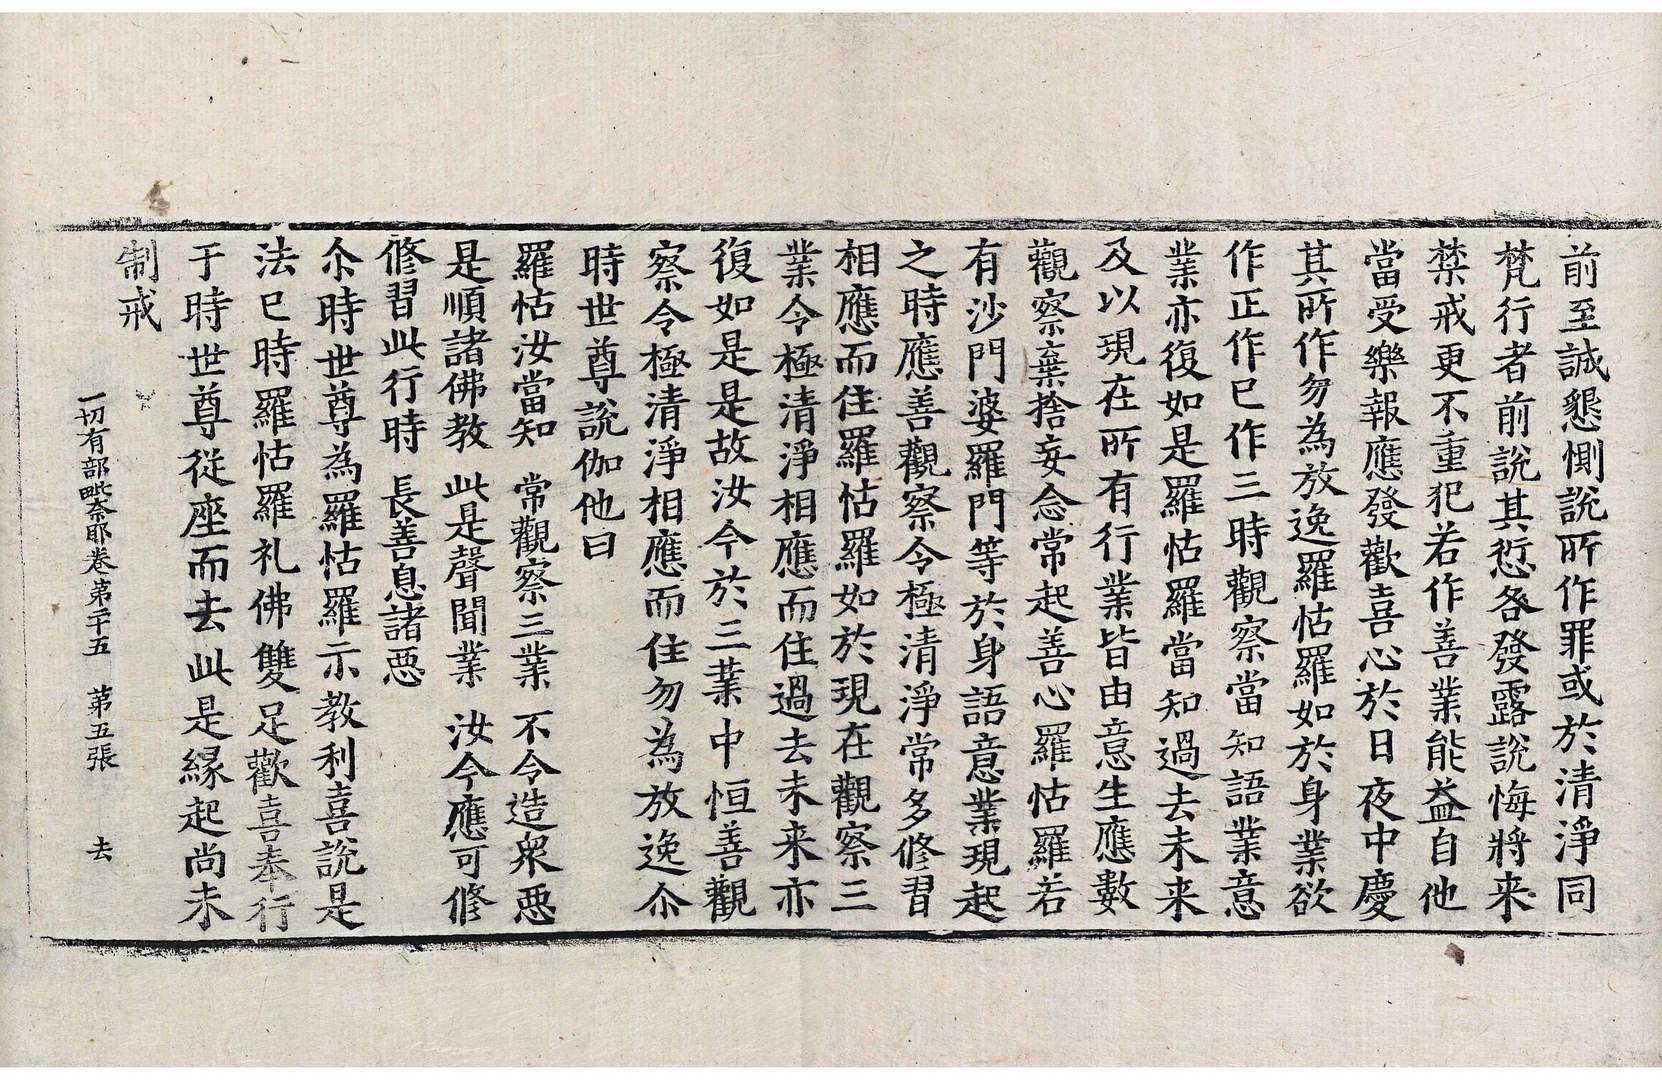 前至誠懇惻說所作罪或於清淨同
梵行者前說其愆咎發露說悔將来
禁戒更不重犯若作善業能益自他
當受樂報應發歡喜心於日夜中慶
其所作勿為放逸羅怙羅如於身業欲
作正作已作三時觀察當知語業意
業亦復如是羅怙羅當知過去未来
及以現在所有行業皆由意生應數
觀察棄捨妄念常起善心羅怙羅若
有沙門婆羅門等於身語意業現起
之時應善觀察令極清淨常多修習
相應而住羅怙羅如於現在觀察三
業令極清淨相應而住過去未来亦
復如是是故汝今於三業中恒善觀
察令極清淨相應而住勿為放逸尒
時世尊說伽他曰
羅怙汝當知　常觀察三業　不令造衆惡
是順諸佛教　此是聲聞業　汝今應可修
修習此行時　長善息諸惡
尒時世尊為羅怙羅示教利喜說是
法已時羅怙羅礼佛雙足歡喜奉行
于時世尊従座而去此是縁起尚未
制戒
一切有部毗奈耶卷第二十五　第五張　去